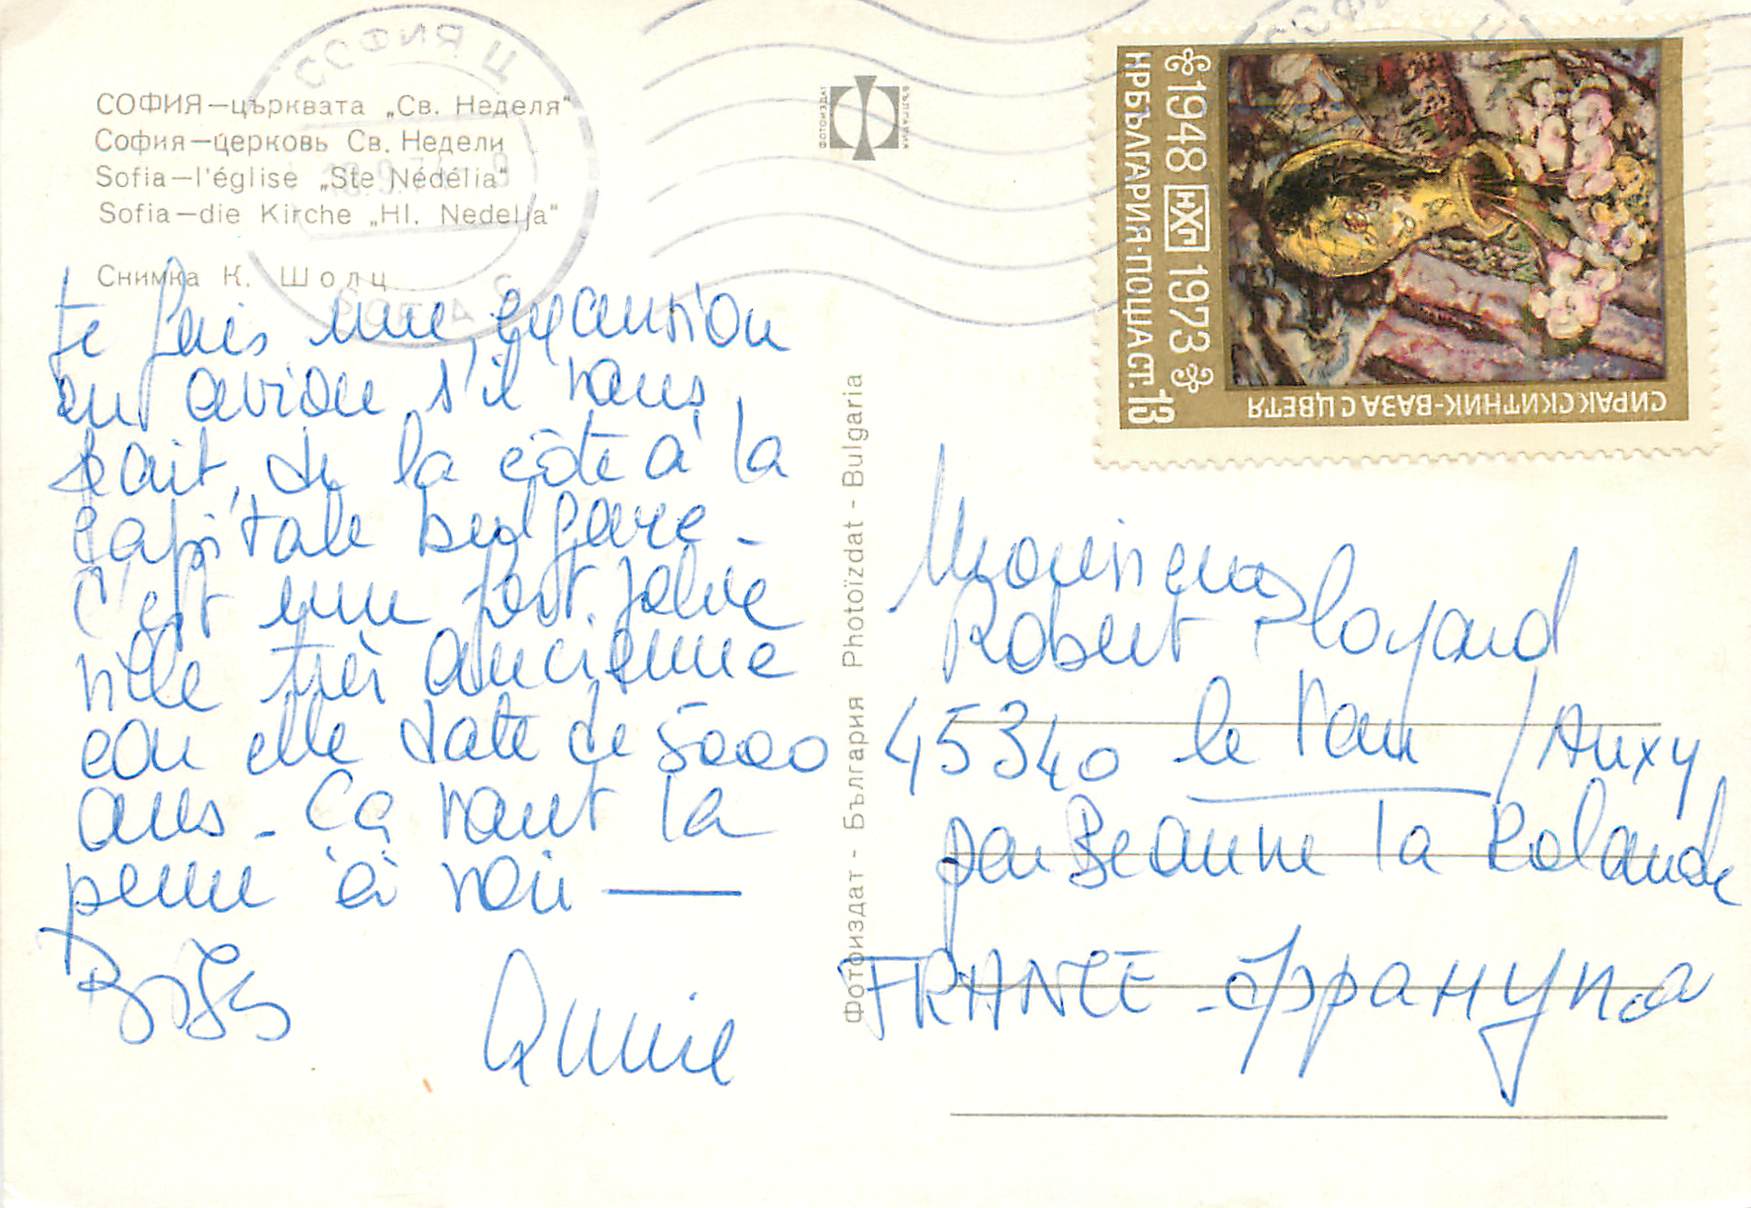 СОФИЯ—църквата „Св. Неделя"
София—церковь Св. Недели
Sofia—l'église „Ste Nédélia"
Sofia—die Kirche „Hl. Nedelja"
Снимка К. Шолц
Je fais une excursion
en avion s'il vous
plait, de la côte à la
capitale bulgare -
C'est une fort jolie
ville très ancienne
car elle date de 5000
ans - Ca vaut la
peine à voir
Annie
ФОТОИЗДАТ БЪЛГАРИЯ
Фотоиздат - България Photoïzdat - Bulgaria
1948 НХГ 1973
НРБЪЛГАРИЯ·ПОЩА СТ. 13
СИРАК СКИТНИК-ВАЗА С ЦВЕТЯ
СОФИЯ Ц
Monsieur
Robert Ployard
45340 le Vau / Auxy
par Beaune la Rolande
FRANCE - Франция